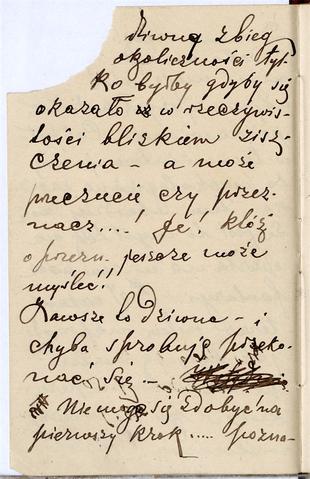 dziwny zbieg
okoliczności tyl-
ko byłby gdyby się
okazało w rzeczywis-
tości bliskiem zisz-
czenia – a może
przeczucie czy przez-
nacz....! Je! któż
o przezn. jeszcze może
myśleć!!
Zawsze to dziwne – i
chyba spróbuję przeko-
nać się –
Nie mogę się zdobyć na
pierwszy krok ..... pozna-